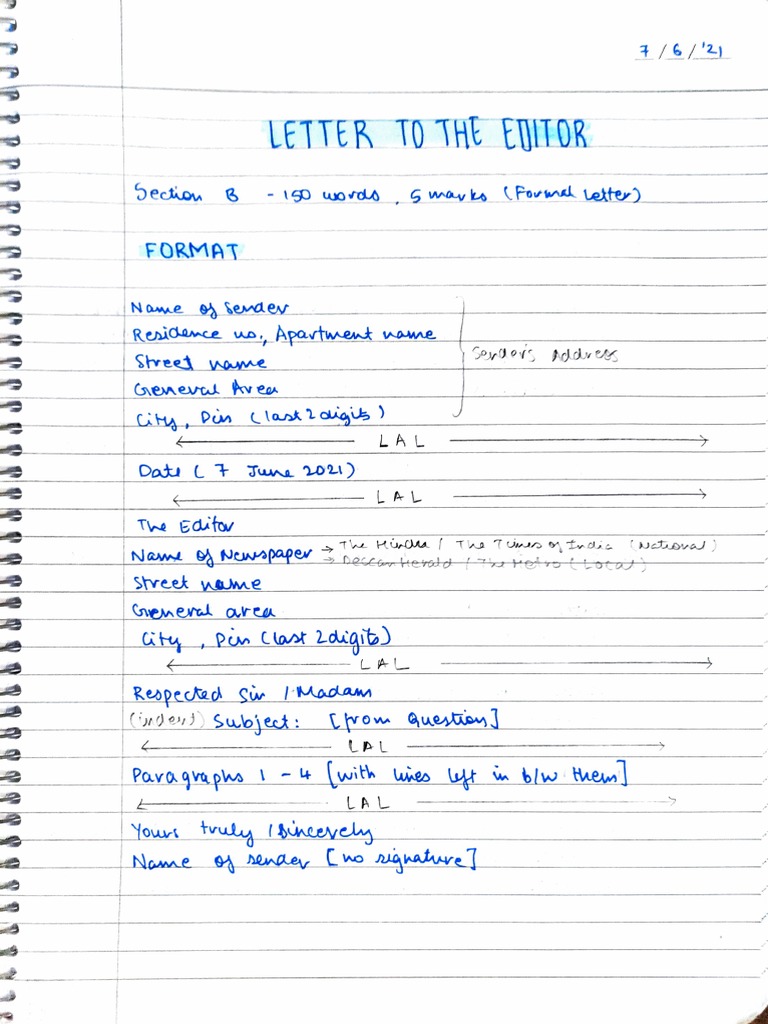 7 / 6 / '21
LETTER TO THE EDITOR
Section B - 150 words, 5 marks (Formal Letter)
FORMAT
Name of Sender
Residence no., Apartment name
Street name
General Area
City, Pin (last 2 digits)
Sender's Address
LAL
Date ( 7 June 2021)
LAL
The Editor
Name of Newspaper → The Hindu / The Times of India (National)
→ Deccan Herald / The Metro (Local)
Street name
General area
City , Pin (last 2 digits)
LAL
Respected Sir / Madam
(indent) Subject: [from Question]
LAL
Paragraphs 1 - 4 [with lines left in b/w them]
LAL
Yours truly / Sincerely
Name of sender [no signature]